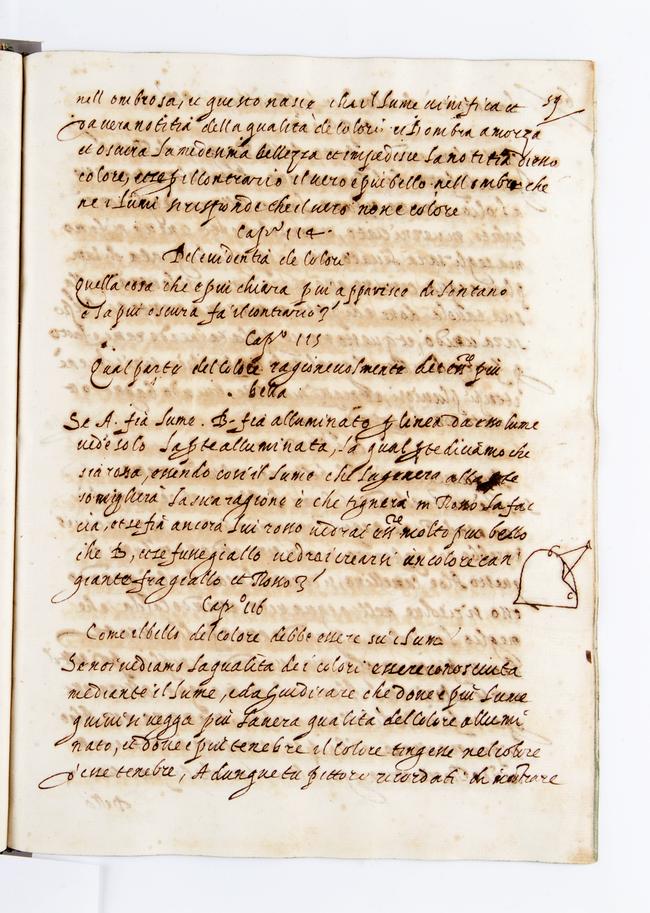 59
nell ombrosa, et questo nasce che il lume vivifica et
da vera notitia della qualità de colori et l'ombra amorza
et oscura la medesima bellezza et impedisce la notitia d'esso
colore, et se p il contrario il nero è piu bello nell ombre che
ne i lumi si risponde che il nero non e colore
Cap.º 114
Del evidentia de Colori
Quella cosa che e piu chiara piu apparisce di lontano
e la piu oscura fa il contrario
Cap.º 115
Qual parte del Colore ragionevolmente de essere piu
bella
Se A. fia lume. B. fia alluminato p linea da esso lume
vede solo la pte alluminata, la qual pte diciamo che
sia rossa, essendo cosi il lume che lugenera alla pte
somigliera la sua ragione è che tignerà in Rosso la fac
cia, et se fia ancora lui rosso vedrai essere molto piu bello
che B, et se fusse giallo vedrai crearsi un colore can
giante fra giallo et Rosso
Cap.º 116
Come il bello del colore debbe essere su i lumi
Se noi vediamo la qualita de i colori essere conosciuta
mediante il lume, e da giudicare che dove e piu lume
quivi si vegga piu la vera qualità del colore allumi
nato, et dove e piu tenebre il Colore tingersi nel colore
d'esse tenebre, Adunque tu pittore ricordati di mostrare